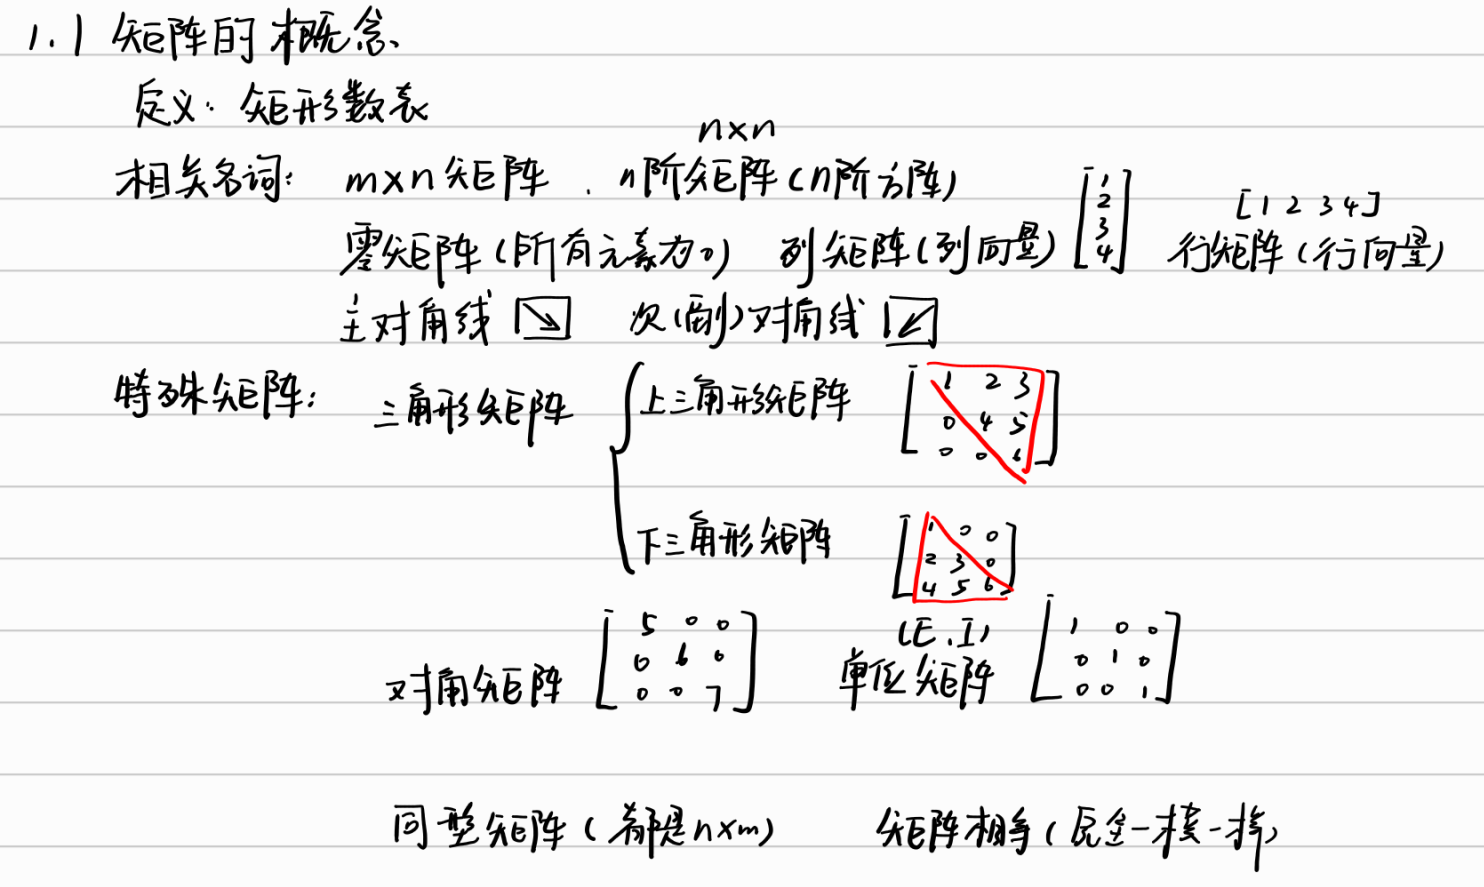 1.1 矩阵的概念
定义: 矩形数表
n×n
相关名词: m×n矩阵 . n阶矩阵(n阶方阵)
[1 2 3 4] [1 2 3 4]
零矩阵(所有元素为0) 列矩阵(列向量) 行矩阵(行向量)
主对角线 次(副)对角线
特殊矩阵: 三角形矩阵 上三角形矩阵
1 2 3
0 4 5
0 0 6
下三角形矩阵
1 0 0
2 3 0
4 5 6
对角矩阵
5 0 0
0 6 0
0 0 7
(E.I)
单位矩阵
1 0 0
0 1 0
0 0 1
同型矩阵(都是n×m) 矩阵相等(完全一模一样)